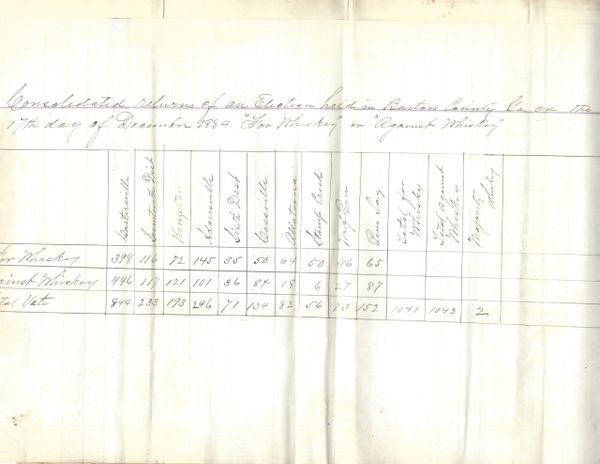 Consolidated returns of an Election held in Bartow County Ga on the
17th day of December 1884 "For Whiskey" or "Against Whiskey"
Cartersville Dist Kingston Adairsville Sixth Dist Cassville Allatoona Stamp Creek Wolf Pen Pine Log Total for Whiskey Total Against Whiskey Majority
For Whiskey 398 116 72 145 35 50 64 50 46 65
Against Whiskey 446 117 121 101 36 84 18 6 27 87
Total Vote 844 233 193 246 71 134 82 56 73 152 1041 1043 2